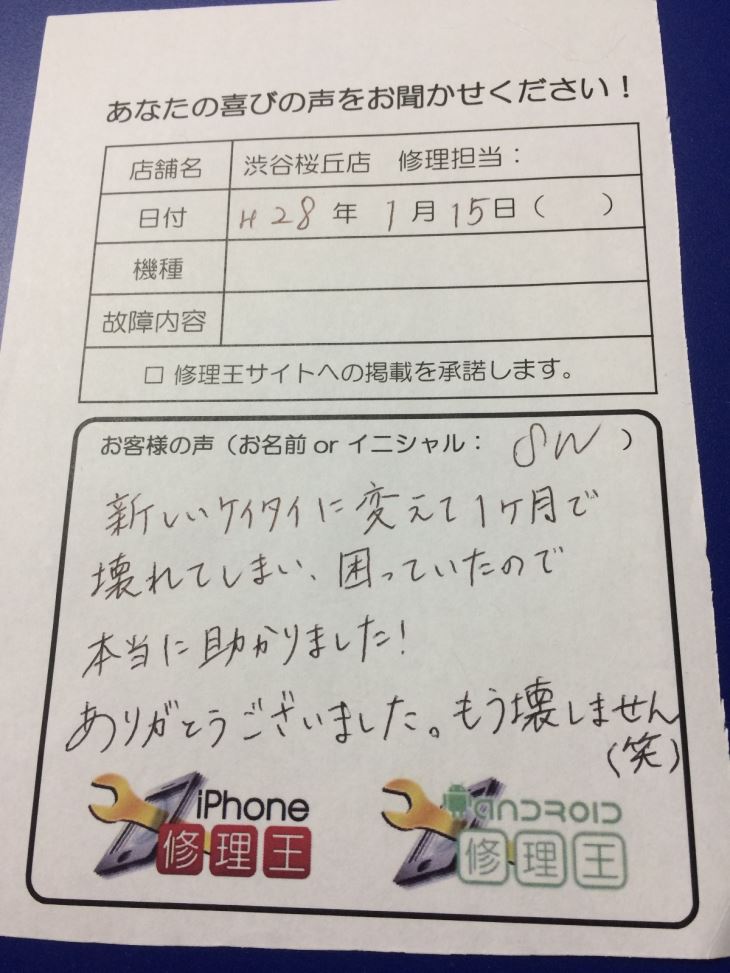 あなたの喜びの声をお聞かせください！
店舗名 渋谷桜丘店 修理担当：
日付 H28年 1月15日（ ）
機種
故障内容
□ 修理王サイトへの掲載を承諾します。
お客様の声（お名前 or イニシャル： SW ）
新しいケイタイに変えて1ヶ月で
壊れてしまい、困っていたので
本当に助かりました！
ありがとうございました。もう壊しません
（笑）
iPhone 修理王
ANDROID 修理王